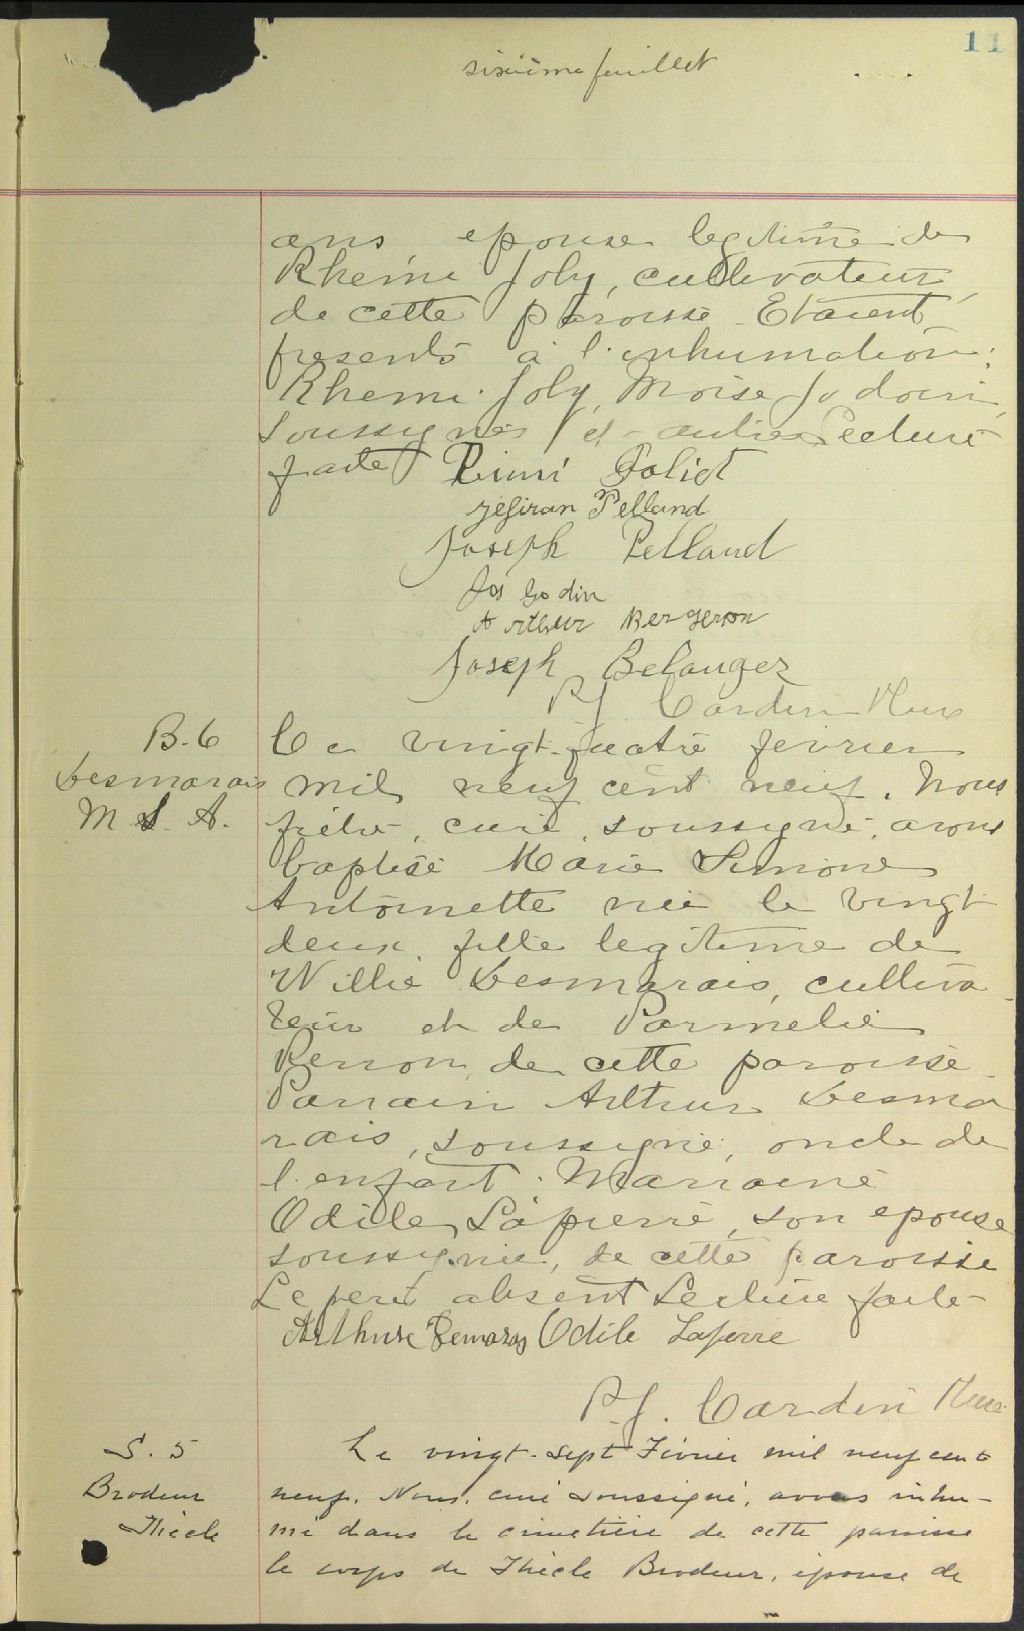 11
sixième feuillet
ans epouse legitime de
Rhemi Joly, cultivateur,
de cette paroisse. Etaient
presents à l'inhumation:
Rhemi Joly, Moise Jodoin,
soussignés et autres Lecture
faite
Joseph Pelland
Jos Godin
Arthur Bergeron
Joseph Belanger
P J Cardin Ptre
B. 6
Desmarais
M S. A.
Le vingt-quatre fevrier
mil neuf cent neuf. Nous
prêtre, curé, soussigné, avons
baptisé Marie Simone
Antoinette née le vingt
deux, fille legitime de
Willie Desmarais, cultiva-
teur et de Parmelie
Perron, de cette paroisse.
Parrain Arthur Desma
rais, soussigné, oncle de
l'enfant. Marraine
Odile Lapierre, son epouse
soussignée, de cette paroisse
Le pere absent Lecture faite
Arthure Odile Lapierre
P. J. Cardin Ptre
S. 5
Brodeur
Thècle
Le vingt-sept Février mil neuf cent
neuf. Nous, curé soussigné, avons inhu-
mé dans le cimetière de cette paroisse
le corps de Thècle Brodeur, épouse de